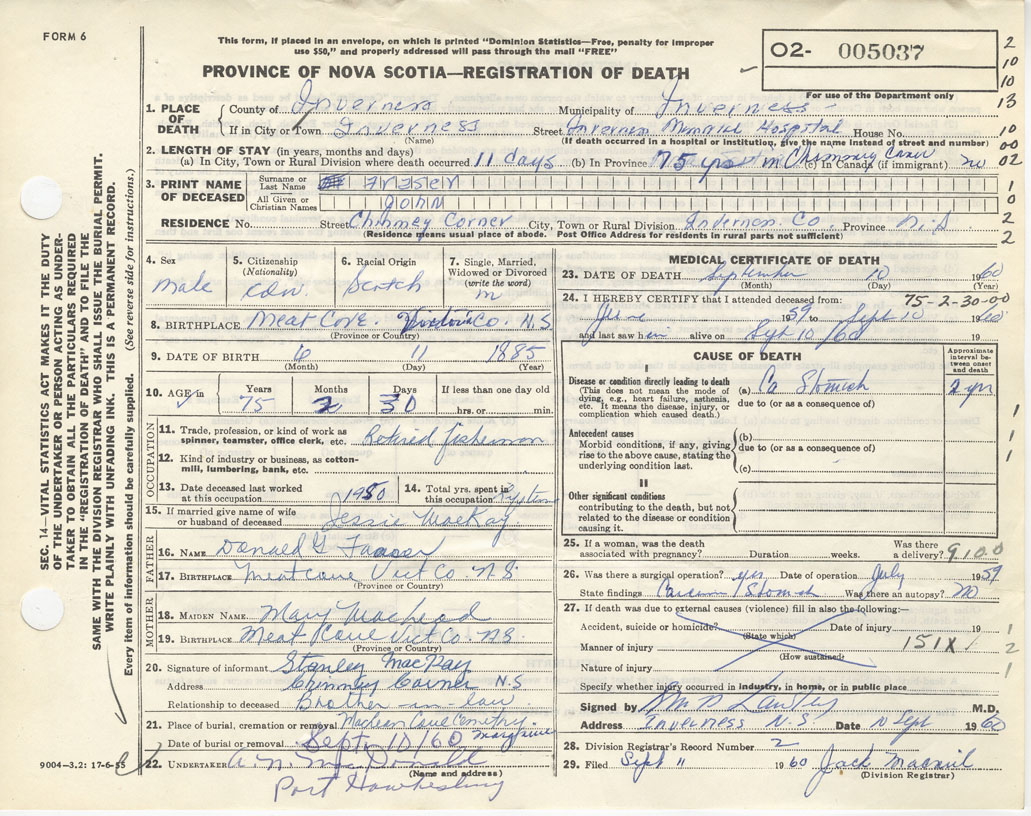 FORM 6
This form, if placed in an envelope, on which is printed "Dominion Statistics—Free, penalty for improper
use $50," and properly addressed will pass through the mail "FREE"
O2- 005037
For use of the Department only
PROVINCE OF NOVA SCOTIA—REGISTRATION OF DEATH
2
10
10
13
10
00
02
1
0
2
2
1. PLACE OF DEATH
County of Inverness Municipality of Inverness
If in City or Town Inverness Street Inverness Memorial Hospital House No.
(Name) (If death occurred in a hospital or institution, give the name instead of street and number)
2. LENGTH OF STAY (in years, months and days)
(a) In City, Town or Rural Division where death occurred 11 days (b) In Province 75 yrs in Chimney Corner (c) In Canada (if immigrant) no
3. PRINT NAME OF DECEASED
Surname or Last Name FRASER
All Given or Christian Names JOHN
RESIDENCE No. Street Chimney Corner City, Town or Rural Division Inverness Co. Province N.S
(Residence means usual place of abode. Post Office Address for residents in rural parts not sufficient)
4. Sex Male
5. Citizenship (Nationality) Can.
6. Racial Origin Scotch
7. Single, Married, Widowed or Divorced (write the word) m
8. BIRTHPLACE Meat Cove. Victoria Co. N.S
(Province or Country)
9. DATE OF BIRTH 6 11 1885
(Month) (Day) (Year)
10. AGE in Years 75 Months 2 Days 30 If less than one day old hrs. or min.
OCCUPATION
11. Trade, profession, or kind of work as
spinner, teamster, office clerk, etc. Retired fisherman
12. Kind of industry or business, as cotton-
mill, lumbering, bank, etc.
13. Date deceased last worked
at this occupation 1950
14. Total yrs. spent in
this occupation
15. If married give name of wife
or husband of deceased Jessie MacKay.
FATHER
16. NAME Donald G Fraser
17. BIRTHPLACE Meat Cove Vict Co. N.S
(Province or Country)
MOTHER
18. MAIDEN NAME Mary MacLeod
19. BIRTHPLACE Meat Cove Vict Co. N.S.
(Province or Country)
20. Signature of informant Stanley MacKay
Address Chimney Corner N.S
Relationship to deceased Brother-in-law
21. Place of burial, cremation or removal MacLean Cove Cemetry. Margaree
Date of burial or removal Sept. 10/60
22. UNDERTAKER A. N. MacDonald
(Name and address)
Port Hawkesbury
MEDICAL CERTIFICATE OF DEATH
23. DATE OF DEATH September 10 1960
(Month) (Day) (Year)
24. I HEREBY CERTIFY that I attended deceased from: 75-2-30-00
June 1959 to Sept 10 1960
and last saw him alive on Sept 10/60 19
CAUSE OF DEATH
Approximate interval between onset and death
I
Disease or condition directly leading to death
(This does not mean the mode of
dying, e.g., heart failure, asthenia,
etc. It means the disease, injury, or
complication which caused death.)
(a) Ca Stomach 2 yrs
due to (or as a consequence of)
Antecedent causes
Morbid conditions, if any, giving
rise to the above cause, stating the
underlying condition last.
(b)
due to (or as a consequence of)
(c)
II
Other significant conditions
contributing to the death, but not
related to the disease or condition
causing it.
1
1
1
25. If a woman, was the death
associated with pregnancy? Duration weeks. Was there
a delivery? 9100
26. Was there a surgical operation? yes Date of operation July 1959
State findings Carcinoma Stomach Was there an autopsy? No
27. If death was due to external causes (violence) fill in also the following:—
Accident, suicide or homicide? Date of injury 19
(State which)
Manner of injury 151X
(How sustained)
Nature of injury
Specify whether injury occurred in industry, in home, or in public place
1
1
2
1
Signed by M.D.
Address Inverness N.S. Date 10 Sept 1960
28. Division Registrar's Record Number 2
29. Filed Sept 11 1960 Jack MacNeil
(Division Registrar)
SEC. 14—VITAL STATISTICS ACT MAKES IT THE DUTY
OF THE UNDERTAKER OR PERSON ACTING AS UNDER-
TAKER TO OBTAIN ALL THE PARTICULARS REQUIRED
IN THE "REGISTRATION OF DEATH" AND TO FILE THE
SAME WITH THE DIVISION REGISTRAR WHO SHALL ISSUE THE BURIAL PERMIT.
WRITE PLAINLY WITH UNFADING INK. THIS IS A PERMANENT RECORD.
Every item of information should be carefully supplied. (See reverse side for instructions.)
9004—3.2: 17-6-55